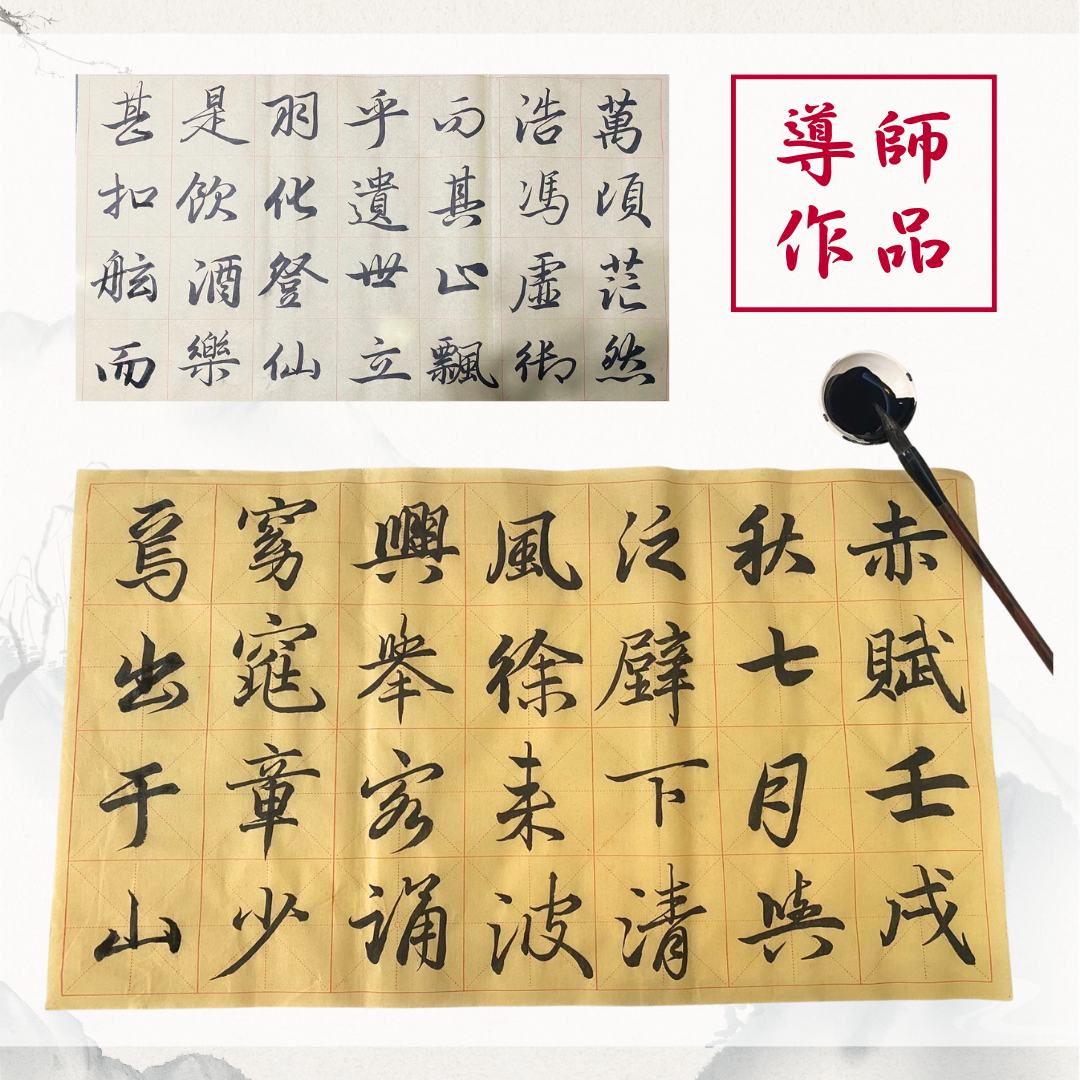 導師
作品
萬頃茫然
浩馮虛御
而其止飄
乎遺世立
羽化登仙
是飲酒樂
甚扣舷而
赤賦壬戌
秋七月與
泛壁下清
風徐来波
興舉客誦
窈窕章少
焉出于山